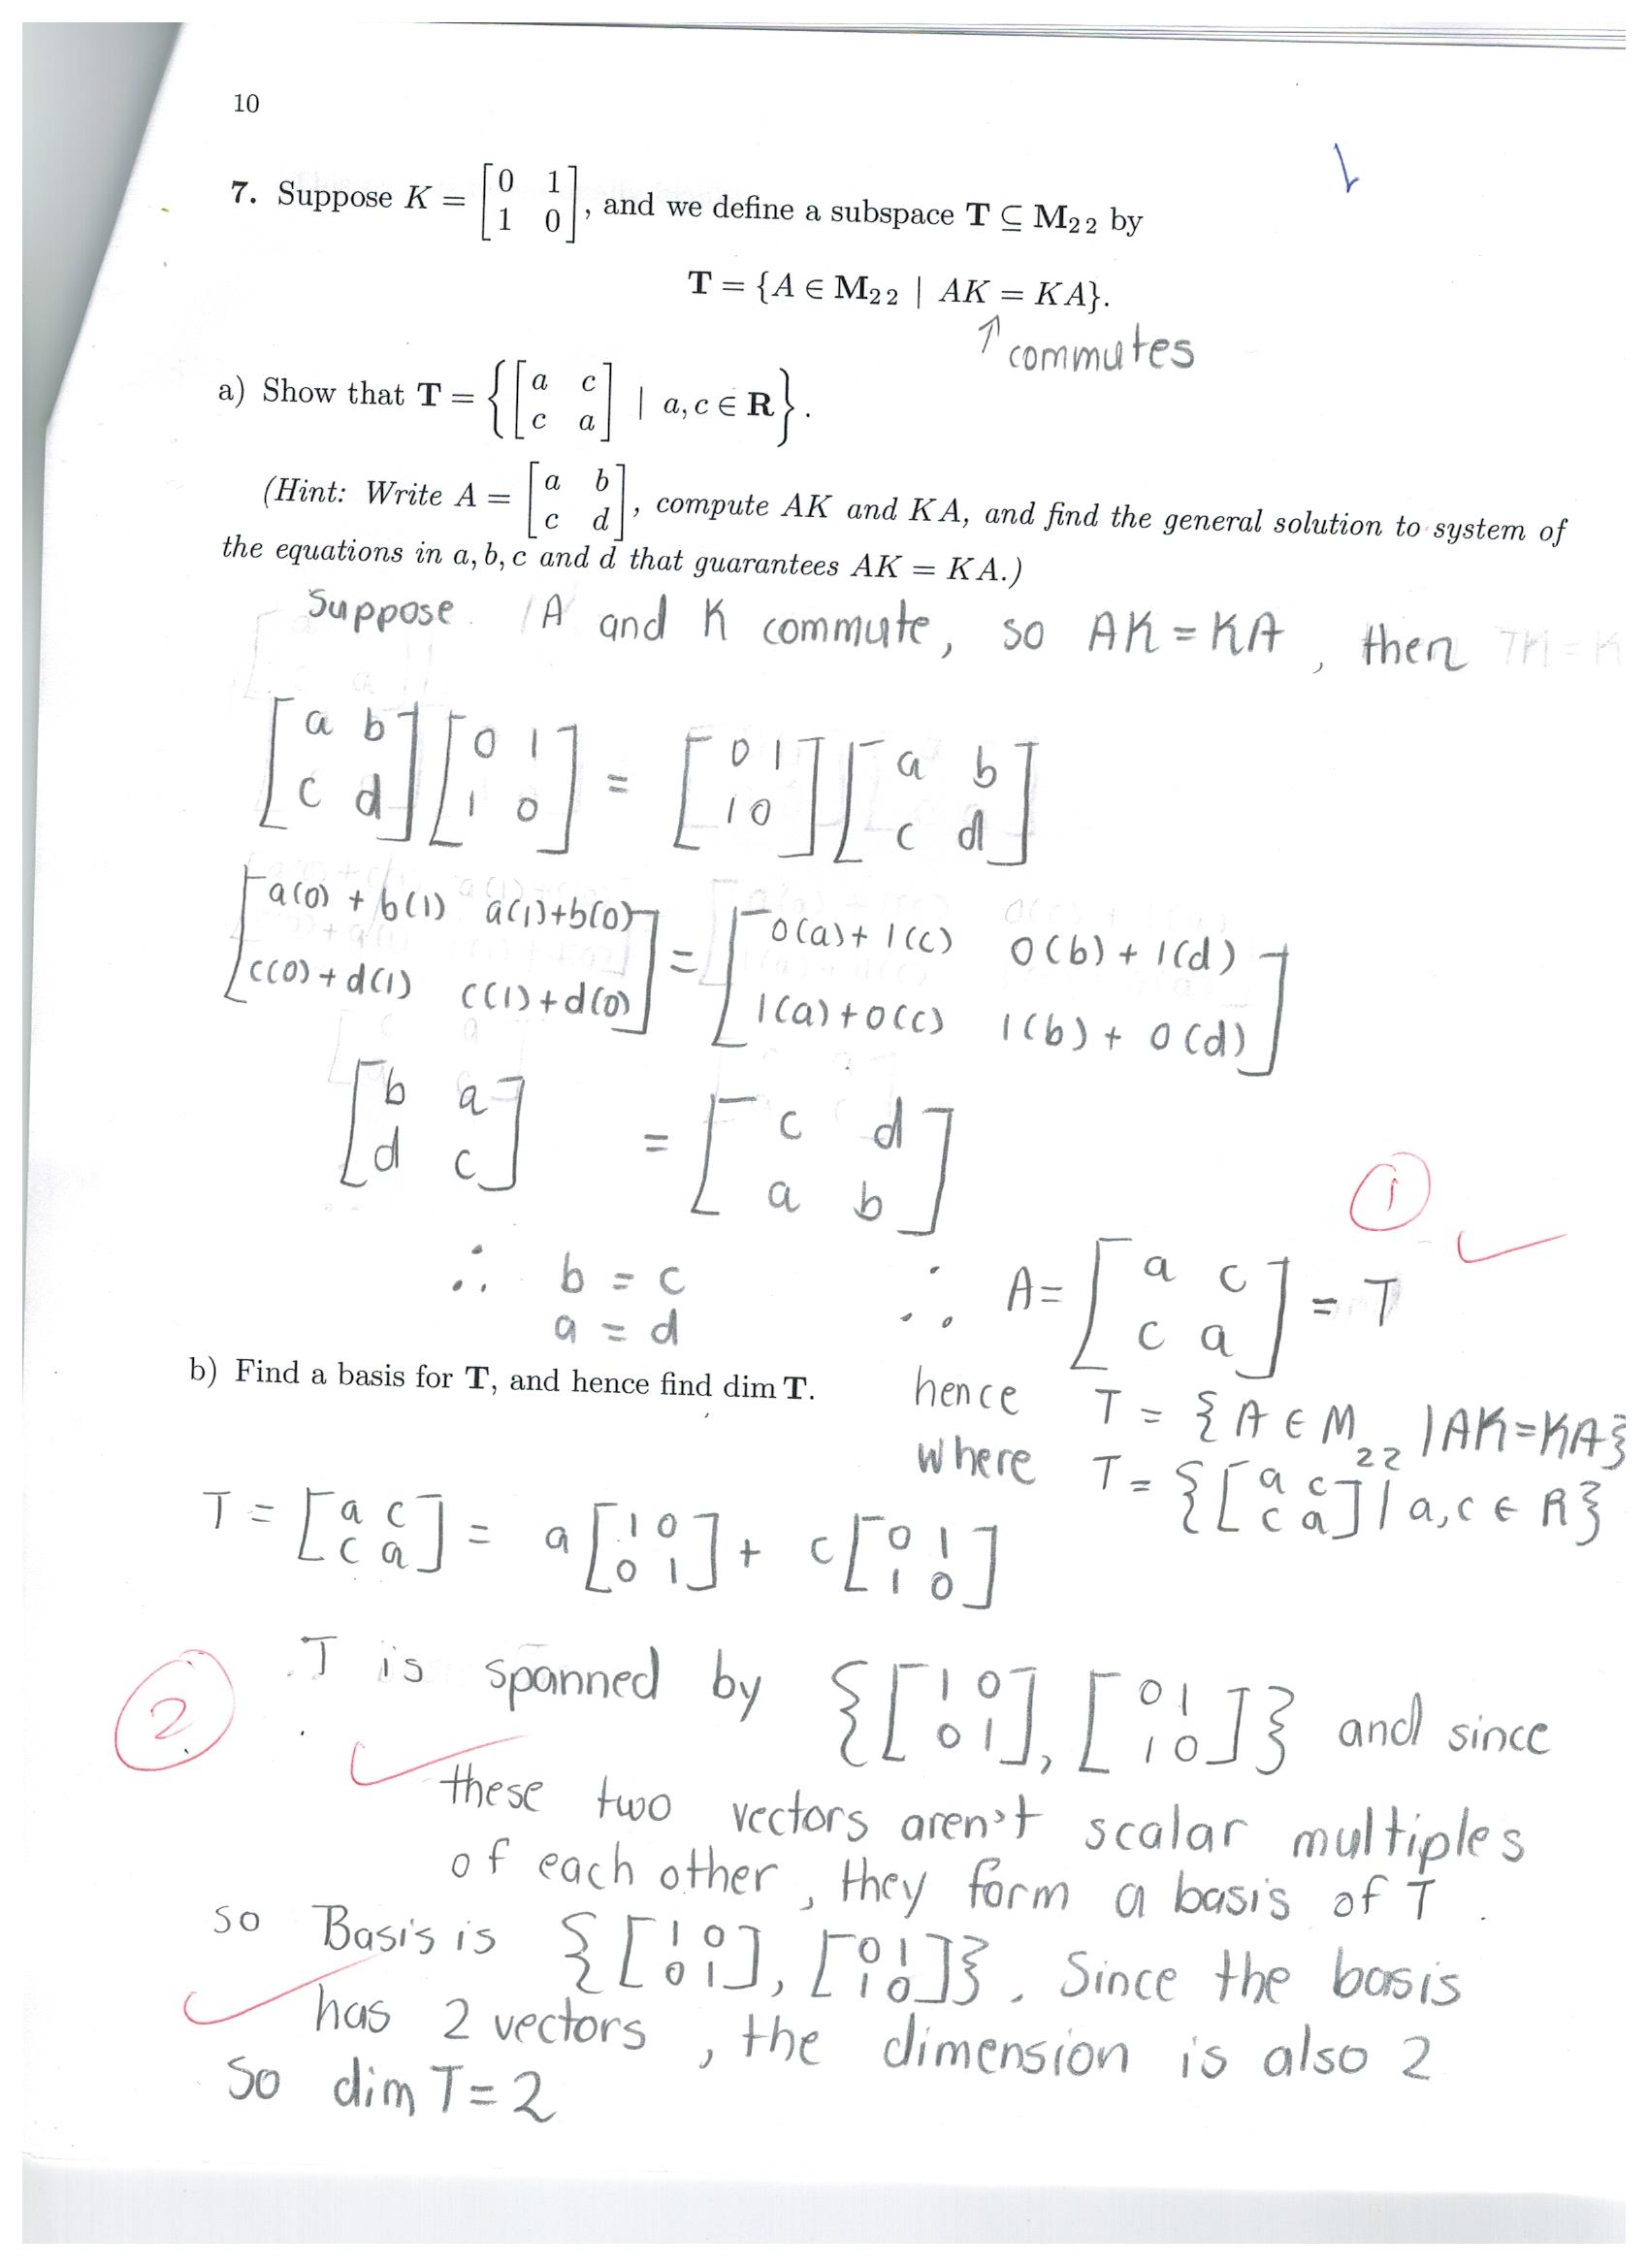 10
7. Suppose K = [0 1; 1 0], and we define a subspace T ⊆ M₂₂ by
T = {A ∈ M₂₂ | AK = KA}.
↑ commutes
a) Show that T = {[a c; c a] | a, c ∈ R}.
(Hint: Write A = [a b; c d], compute AK and KA, and find the general solution to system of
the equations in a, b, c and d that guarantees AK = KA.)
Suppose A and K commute, so AK = KA, then
[a b; c d][0 1; 1 0] = [0 1; 1 0][a b; c d]
[a(0) + b(1) a(1)+b(0); c(0) + d(1) c(1)+d(0)] = [0(a)+1(c) 0(b)+1(d); 1(a)+0(c) 1(b)+0(d)]
[b a; d c] = [c d; a b]
1
∴ b = c
a = d
∴ A = [a c; c a] = T
hence T = {A ∈ M₂₂ | AK=KA}
where T = {[a c; c a] | a,c ∈ R}
b) Find a basis for T, and hence find dim T.
T = [a c; c a] = a[1 0; 0 1] + c[0 1; 1 0]
2
T is spanned by {[1 0; 0 1], [0 1; 1 0]} and since
these two vectors aren't scalar multiples
of each other, they form a basis of T.
so Basis is {[1 0; 0 1], [0 1; 1 0]}. Since the basis
has 2 vectors, the dimension is also 2
So dim T = 2